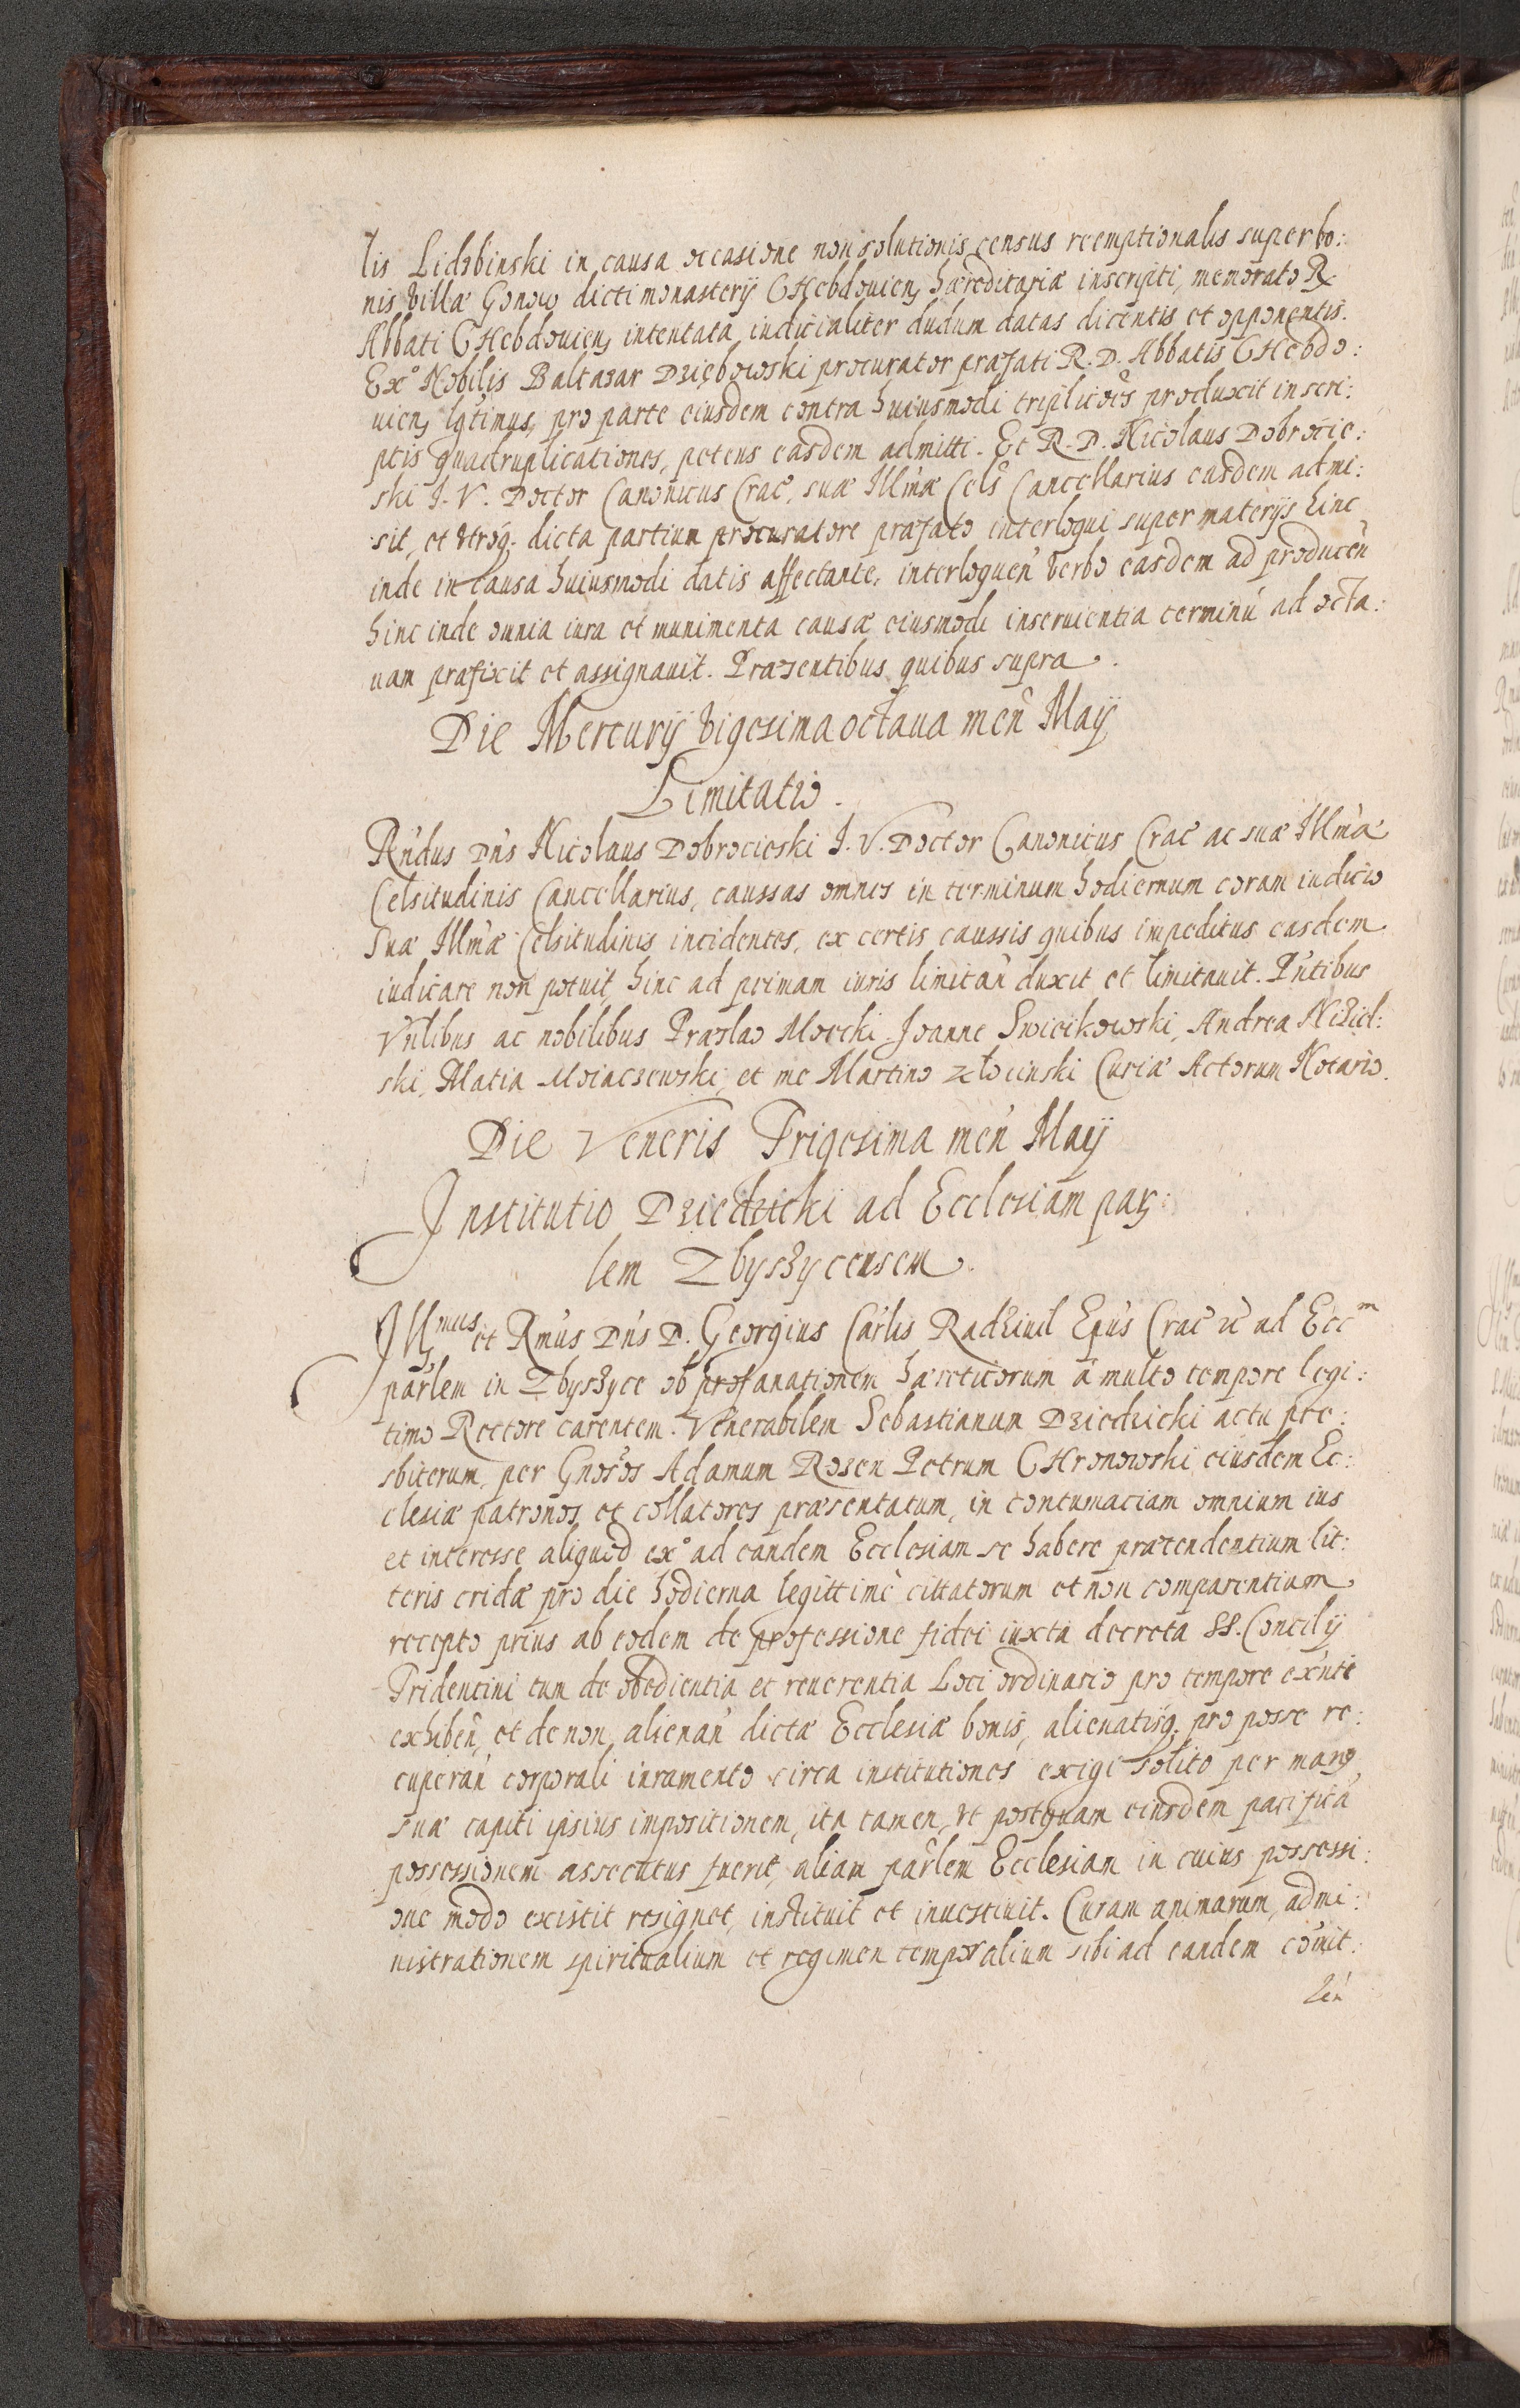 lis Lidzbinski in causa occasione non solutionis census reemptionalis super bo:
nis villæ Gonow dicti monasterij CHebdouien, hæreditariæ inscripti, memorato R.
Abbati CHebdouien, intentata iudicialiter dudum datas dicentis et opponentis.
Exº Nobilis Baltazar Dziębowski procurator præfati R. D. Abbatis CHebdo:
uien, lgtimus, pro parte eiusdem contra huiusmodi triplicões produxit in scri:
ptis quadruplicationes, petens easdem admitti. Et R. D. Nicolaus Dobrocie:
ski J. V. Doctor Canonicus Crac̃, suæ Illmæ Cels̃ Cancellarius easdem admi:
sit, et vtroq̃ dicta partium procuratore præfato interloqui super materijs hinc
inde in causa huiusmodi datis affectante, interloqueñ verbo easdem ad produceñ
hinc inde omnia iura et munimenta causæ eiusmodi inseruientia terminũ ad octa:
uam præfixit et assignauit. Præsentibus quibus supra.
Die Mercurij vigesima octaua meñ Maij
Limitatio.
Rñdus Dñs Nicolaus Dobrocieski J. V. Doctor Canonicus Crac̃ ac suæ Illmæ
Celsitudinis Cancellarius, caussas omnes in terminum hodiernum coram iudicio
Suæ Illmæ Celsitudinis incidentes, ex certis caussis quibus impeditus easdem
iudicare non potuit, hinc ad primam iuris limitañ duxit et limitauit. Pñtibus
Vñlibus ac nobilibus Præslao Mocki. Joanne Swicikowski, Andrea
ski, Matia Moiaczewski, et me Martino Złocinski Curiæ Actorum Notario.
Die Veneris Trigesima meñ Maij
Institutio Dziedzicki ad Ecclesiam par:
lem Zbyszycensem.
Illmus et Rmus Dñs D. Georgius Carlis Radziuil Epũs Crac̃ &c ad Eccm
parlem in Zbyszyce ob profanationem hæreticorum á multo tempore legi:
timo Rectore carentem. Venerabilem Sebastianum Dziedzicki actu pre:
sbiterum, per Gnosos Adamum Rozen Petrum CHronowski eiusdem Ec:
clesiæ patronos et collatores præsentatum, in contumaciam omnium ius
et interesse aliquod exº ad eandem Ecclesiam se habere prætendentium lit:
teris cridæ pro die hodierna legittimè cittatorum et non comparentium
recepto prius ab eodem de professione fidei iuxta decreta SS. Concilij
Tridentini tum de obedientia et reuerentia Loci ordinario pro tempore exñti
exhibeñ, et de non alienañ dictæ Ecclesiæ bonis, alienatisq̃ pro posse re:
cuperañ corporali iuramento circa institutiones exigi solito per manq
suæ capiti ipsius impositionem, ita tamen, vt postquam eiusdem pacificã
possessionem assecutus fuerit, aliam parlem Ecclesiam in cuius possessi:
one modo existit resignet, instituit et inuestiuit. Curam animarum, admi:
nistrationem spiritualium et regimen temporalium sibi ad eandem cõmit:
teñ